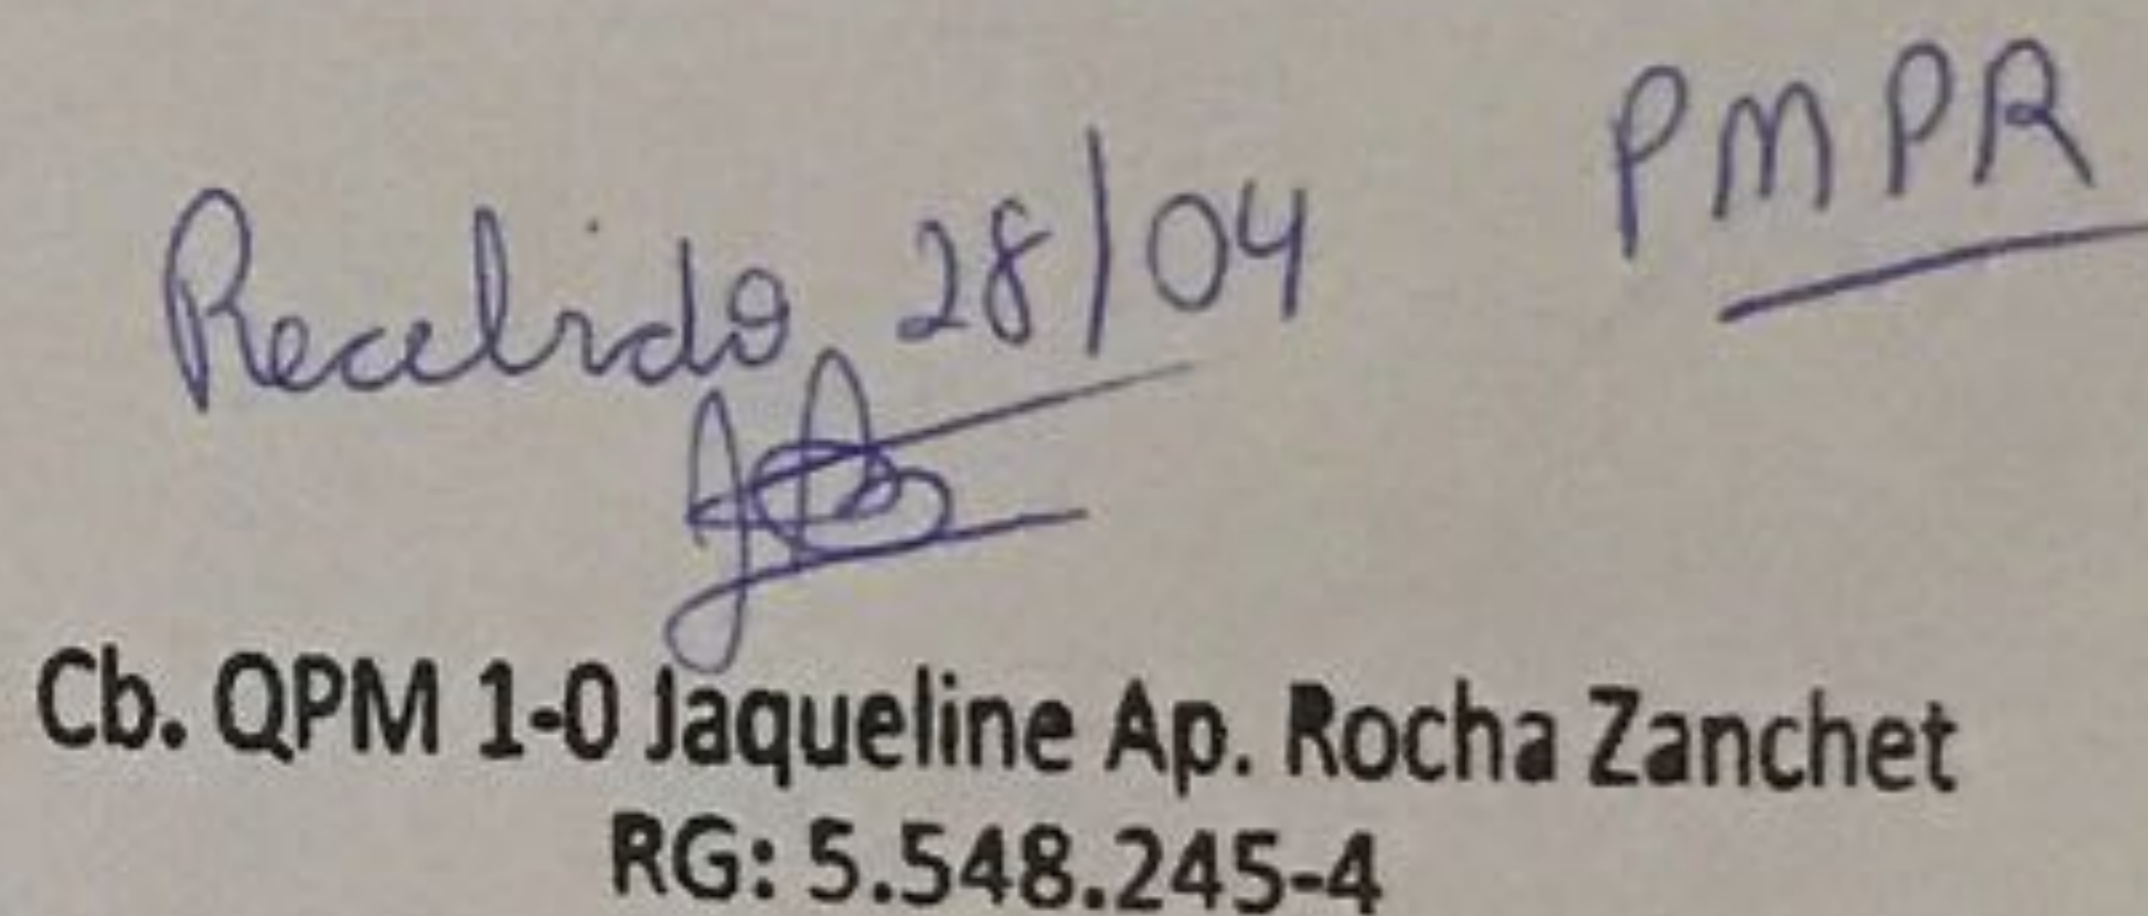 PMPR
Recebido 28/04
Cb. QPM 1-0 Jaqueline Ap. Rocha Zanchet
RG: 5.548.245-4